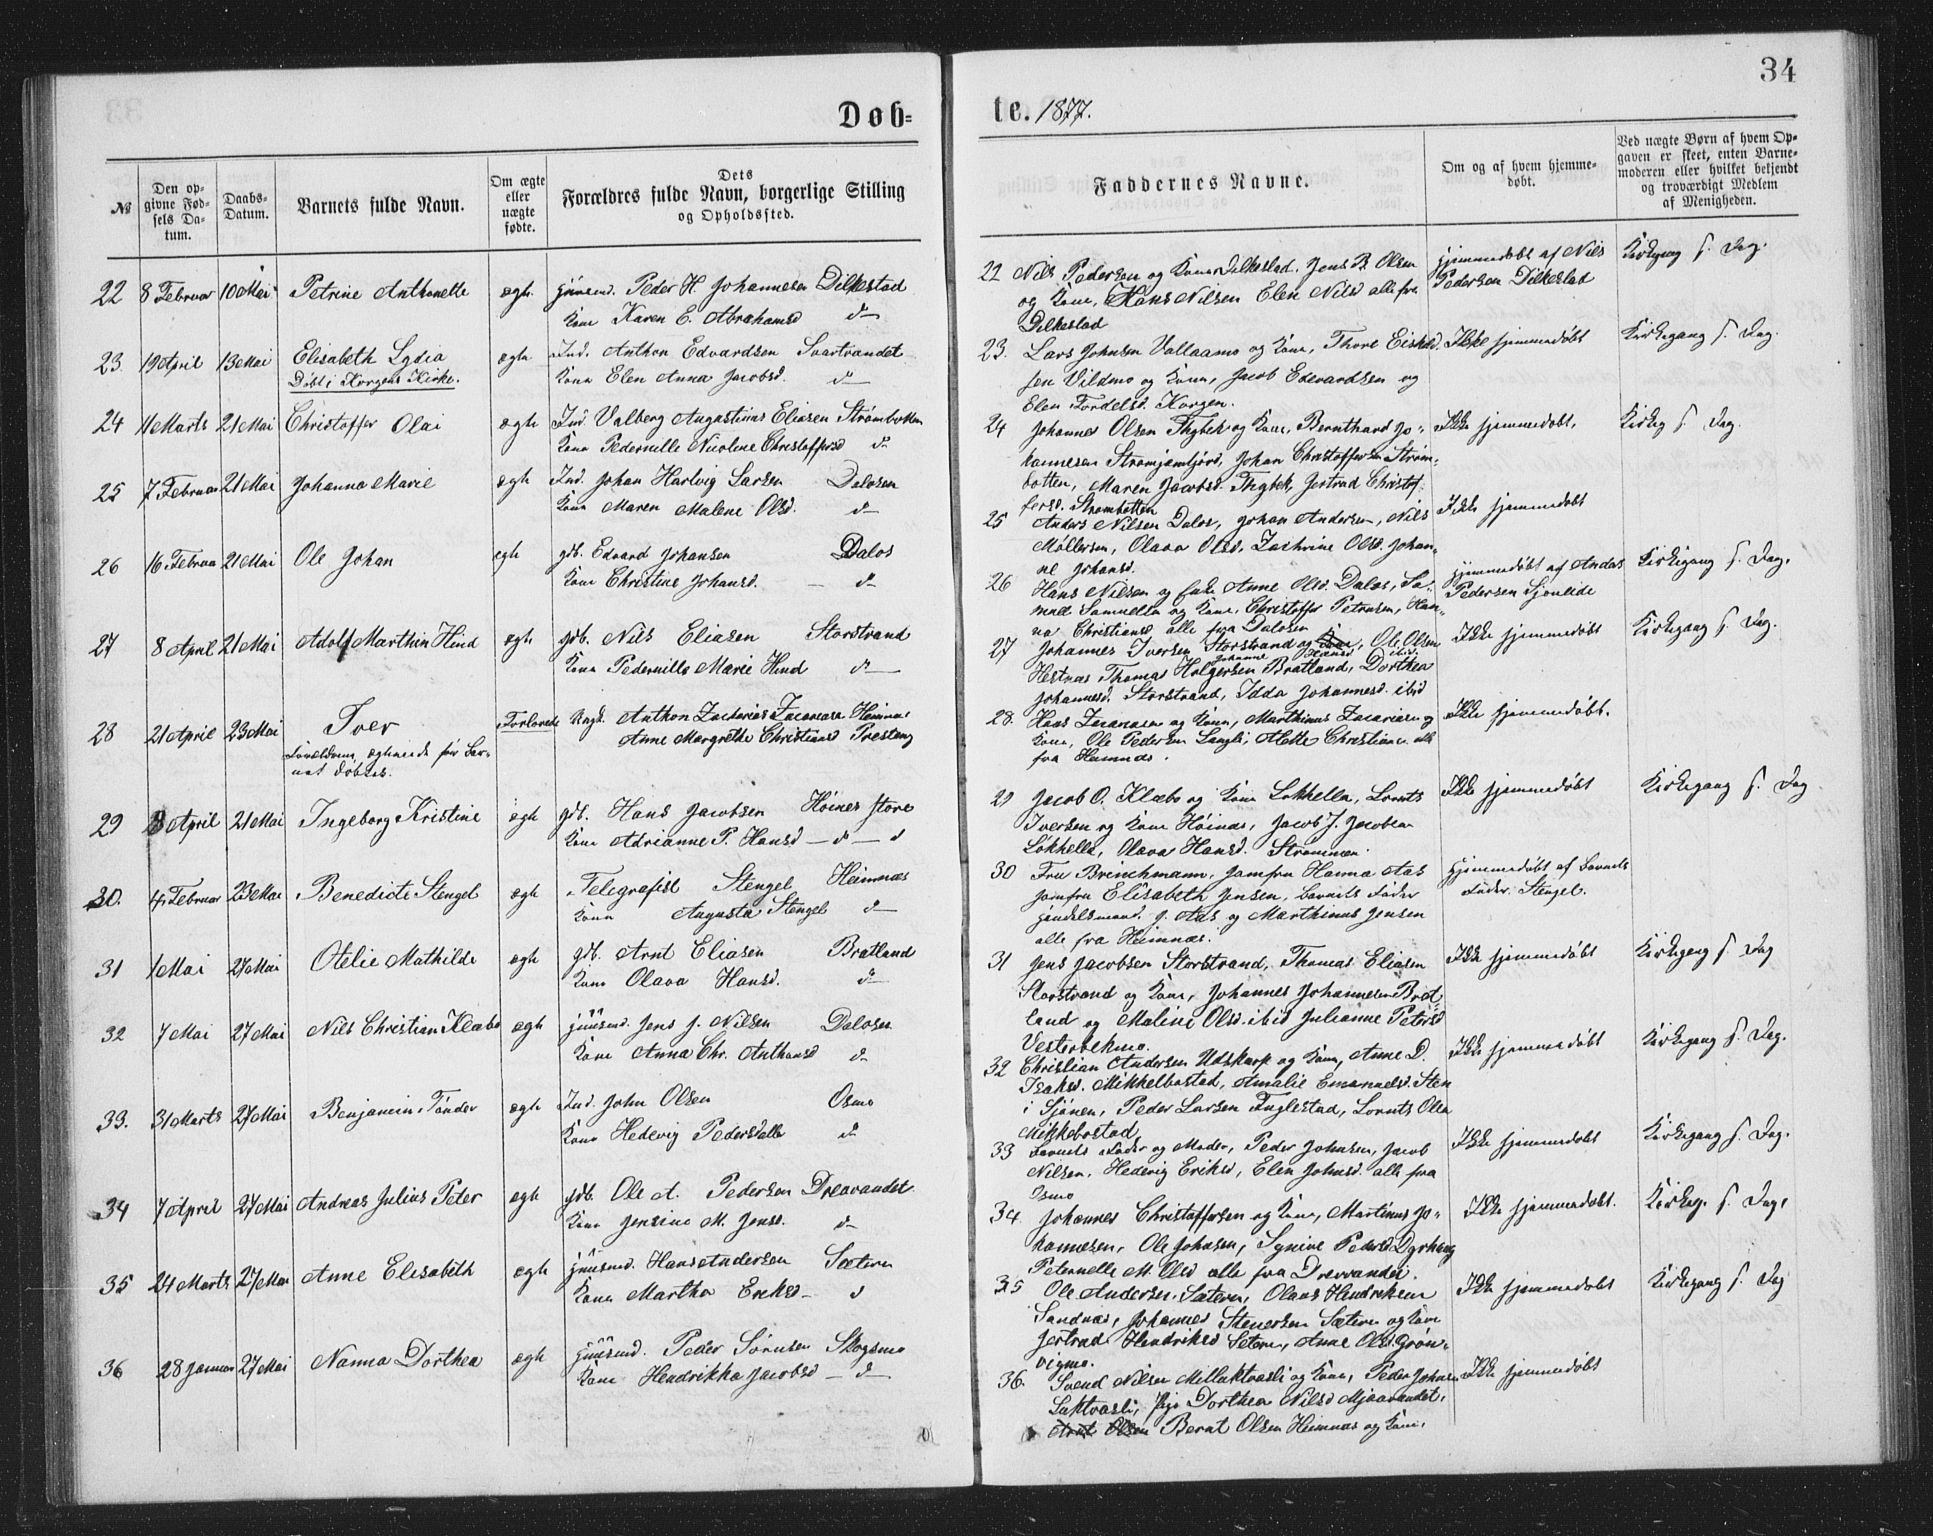 34
Døb-
te. 1877.
№
Den op-
givne Fød-
sels Da-
tum.
Daabs-
Datum.
Barnets fulde Navn.
Om ægte
eller
nægte
fødte.
Dets
Forældres fulde Navn, borgerlige Stilling
og Opholdssted.
22 8 Februar 10 Mai Petrine Anthonette ægte Peder H Johannesen Dilkestad
Kone Karen E. Abrahamsd do
23. 19 April 13 Mai Elisabeth Lydia ægte Ind. Anthon Edvardsen Svartvandet
Døbt i Korgens Kirke. Kone Elen Anna Jacobsd. do
24 11 Marts 21 Mai Christoffer Olai ægte Ind. Valberg Augustinus Eliasen Strømbotten
Kone Pedernille Nicoline Christoffersd do
25 7 Februar 21 Mai Johanna Marie ægte Ind. Johan Hartvig Larsen Dalosen
Kone Maren Malene Olsd. do
26 16 Februar 21 Mai Ole Johan ægte gdb. Edvard Johansen Dalos
Kone Christine Johansd. do
27 8 April 21 Mai Adolf Marthin Hind ægte gdb. Nils Eliasen Storstrand
Kone Pedernille Marie Hind do
28 21 April 23 Mai Iver Forlovede Ungk. Anthon Zacharias Zacariasen Hemnæs
Forældrene ægteviede før Bar- Anne Margrethe Christiansd Presteng
net døbtes.
29 8 April 21 Mai Ingeborg Kristine ægte gdb. Hans Jacobsen Høines store
Kone Adrianne P. Hansd do
30. 4 Februar 23 Mai Benedicte Stengel ægte Telegrafist Stengel Hemnæs
Kone Augusta Stengel do
31 1 Mai 27 Mai Otelie Mathilde ægte gdb. Arnt Eliasen Bratland
Kone Olava Hansd. do
32 7 Mai 27 Mai Nils Christian Klæbo ægte Jens J. Nilsen Dalosen
Kone Anna Chr. Anthonsd do
33. 31 Marts 27 Mai Benjamin Tønder ægte Ind. John Olsen Osmo
Kone Hedevig Pedersdatter do
34 7 April 27 Mai Andreas Julius Peter ægte gdb. Ole A. Pedersen Drevvandet
Kone Jensine M. Jensd. do
35 24 Marts 27 Mai Anne Elisabeth ægte Hans Andersen Sætern
Kone Martha Eriksd do
36 28 Januar 27 Mai Nanna Dorthea ægte Peder Sørensen Skogsmo
Kone Hendrikka Jacobsd do
Faddernes Navne.
Om og af hvem hjemme-
døbt.
Ved nægte Børn af hvem Op-
gaven er skeet, enten Barne-
moderen eller hvilket bekjendt
og troværdigt Medlem
af Menigheden.
22 Nils Pedersen og Kone Dilkestad, Jens P. Olsen hjemmedøbt af Nils Kirkegang s. Dag.
og Kone, Hans Nilsen Elen Nilsd alle fra Pedersen Dilkestad
Dilkestad
23. Lars Johnsen Vallaamo og Kone, Thore Ikke hjemmedøbt Kirkegang s. Dag.
sen Vildmo og Kone, Jacob Edevardsen og
Elen Tordelsd. Korgen.
24 Johannes Olsen og Kone, Bernthard Jo- Ikke hjemmedøbt. Kirkeg s. Dag.
hannesen Johan Christoffersen Strøm-
botten, Maren Jacobsd. Gertrud Christof-
fersd. Strombotten
25 Anders Nilsen Dalos, Johan Andersen, Nils Ikke hjemmedøbt
Møllersen, Olava Olsd, Olsd. Johan-
ne Johansd.
26 Hans Nilsen og Anne Olsd. Dalos, Sa- hjemmedøbt af Andas Kirkegang s. Dag.
muel Samuelsen og Kone, Christoffer Petersen, Han- Pedersen Sjonlide
na Christiansd alle fra Dalosen
27 Johannes Iversen Storstrand og Kone, Ole Olsen Ikke hjemmedøbt Kirkegang s. Dag.
Johanne Hansd ibid.
Hestnæs Thomas Holgersen Bratland, Dorthea
Johannesd. Storstrand, Idda Johannesd. ibid
28. Hans Zacariasen og Kone, Marthinus Zacariasen og Ikke hjemmedøbt.
Kone, Ole Pedersen Langli, Alette Christiansen alle
fra Hemnæs.
29 Jacob O. Klæbo og Kone Løkhella, Lornts Ikke hjemmedøbt Kirkegang s. Dag
Iversen og Kone Høinæs, Jacob J. Jacobsen
Løkhella, Olava Hansd. Strømmen.
30 Fru Brinchmann, Jomfru Hanna Aas hjemmedøbt af Barnets
Jomfru Elisabeth Jensen, Barnets Fader Fader Stengel.
Handelsmand J. Aas og Marthinus Jensen
alle fra Hemnæs.
31 Jens Jacobsen Storstrand, Thomas Eliasen Ikke hjemmedøbt Kirkegang s. Dag
Storstrand og Kone, Johannes Johannesen Brat-
land og Maline Olsd. ibid Julianne Petersd
Vesterbekmo.
32 Christian Andersen Utskarp og Kone, Anne D. Ikke hjemmedøbt Kirkegang s. Dag.
Isaksd. Mikkelbostad, Amalie Emanuelsd. Sten
i Sjonen, Peder Larsen Fuglestad, Lornts Olsen
Mikkebostad
33 Barnets Fader og Moder, Peder Johnsen, Jacob Ikke hjemmedøbt Kirkegang s. Dag.
Nilsen, Hedevig Eriksd, Elen Johnsd. alle fra
Osmo
34 Johannes Christoffersen og Kone, Martinus Jo- Ikke hjemmedøbt. Kirkeg. s. Dag.
hannesen, Ole Johnsen, Synive Pedersd. Dyrhaug
Peternelle M. Olsd alle fra Drevvandet.
35 Ole Andersen Sætern, Olaus Hendriksen Ikke hjemmedøbt Kirkegang s. Dag
Sandnæs, Johannes Stenersen Sætern og Kone
Gertrud Hendriksd Setern, Anne Olsd. Grøn-
vigmo.
36. Svend Nilsen og Kone, Peder Johansen Ikke hjemmedøbt
Pige Dorthea Nilsd
Arnt Olsen Bernt Olsen Hemnæs og Kone.